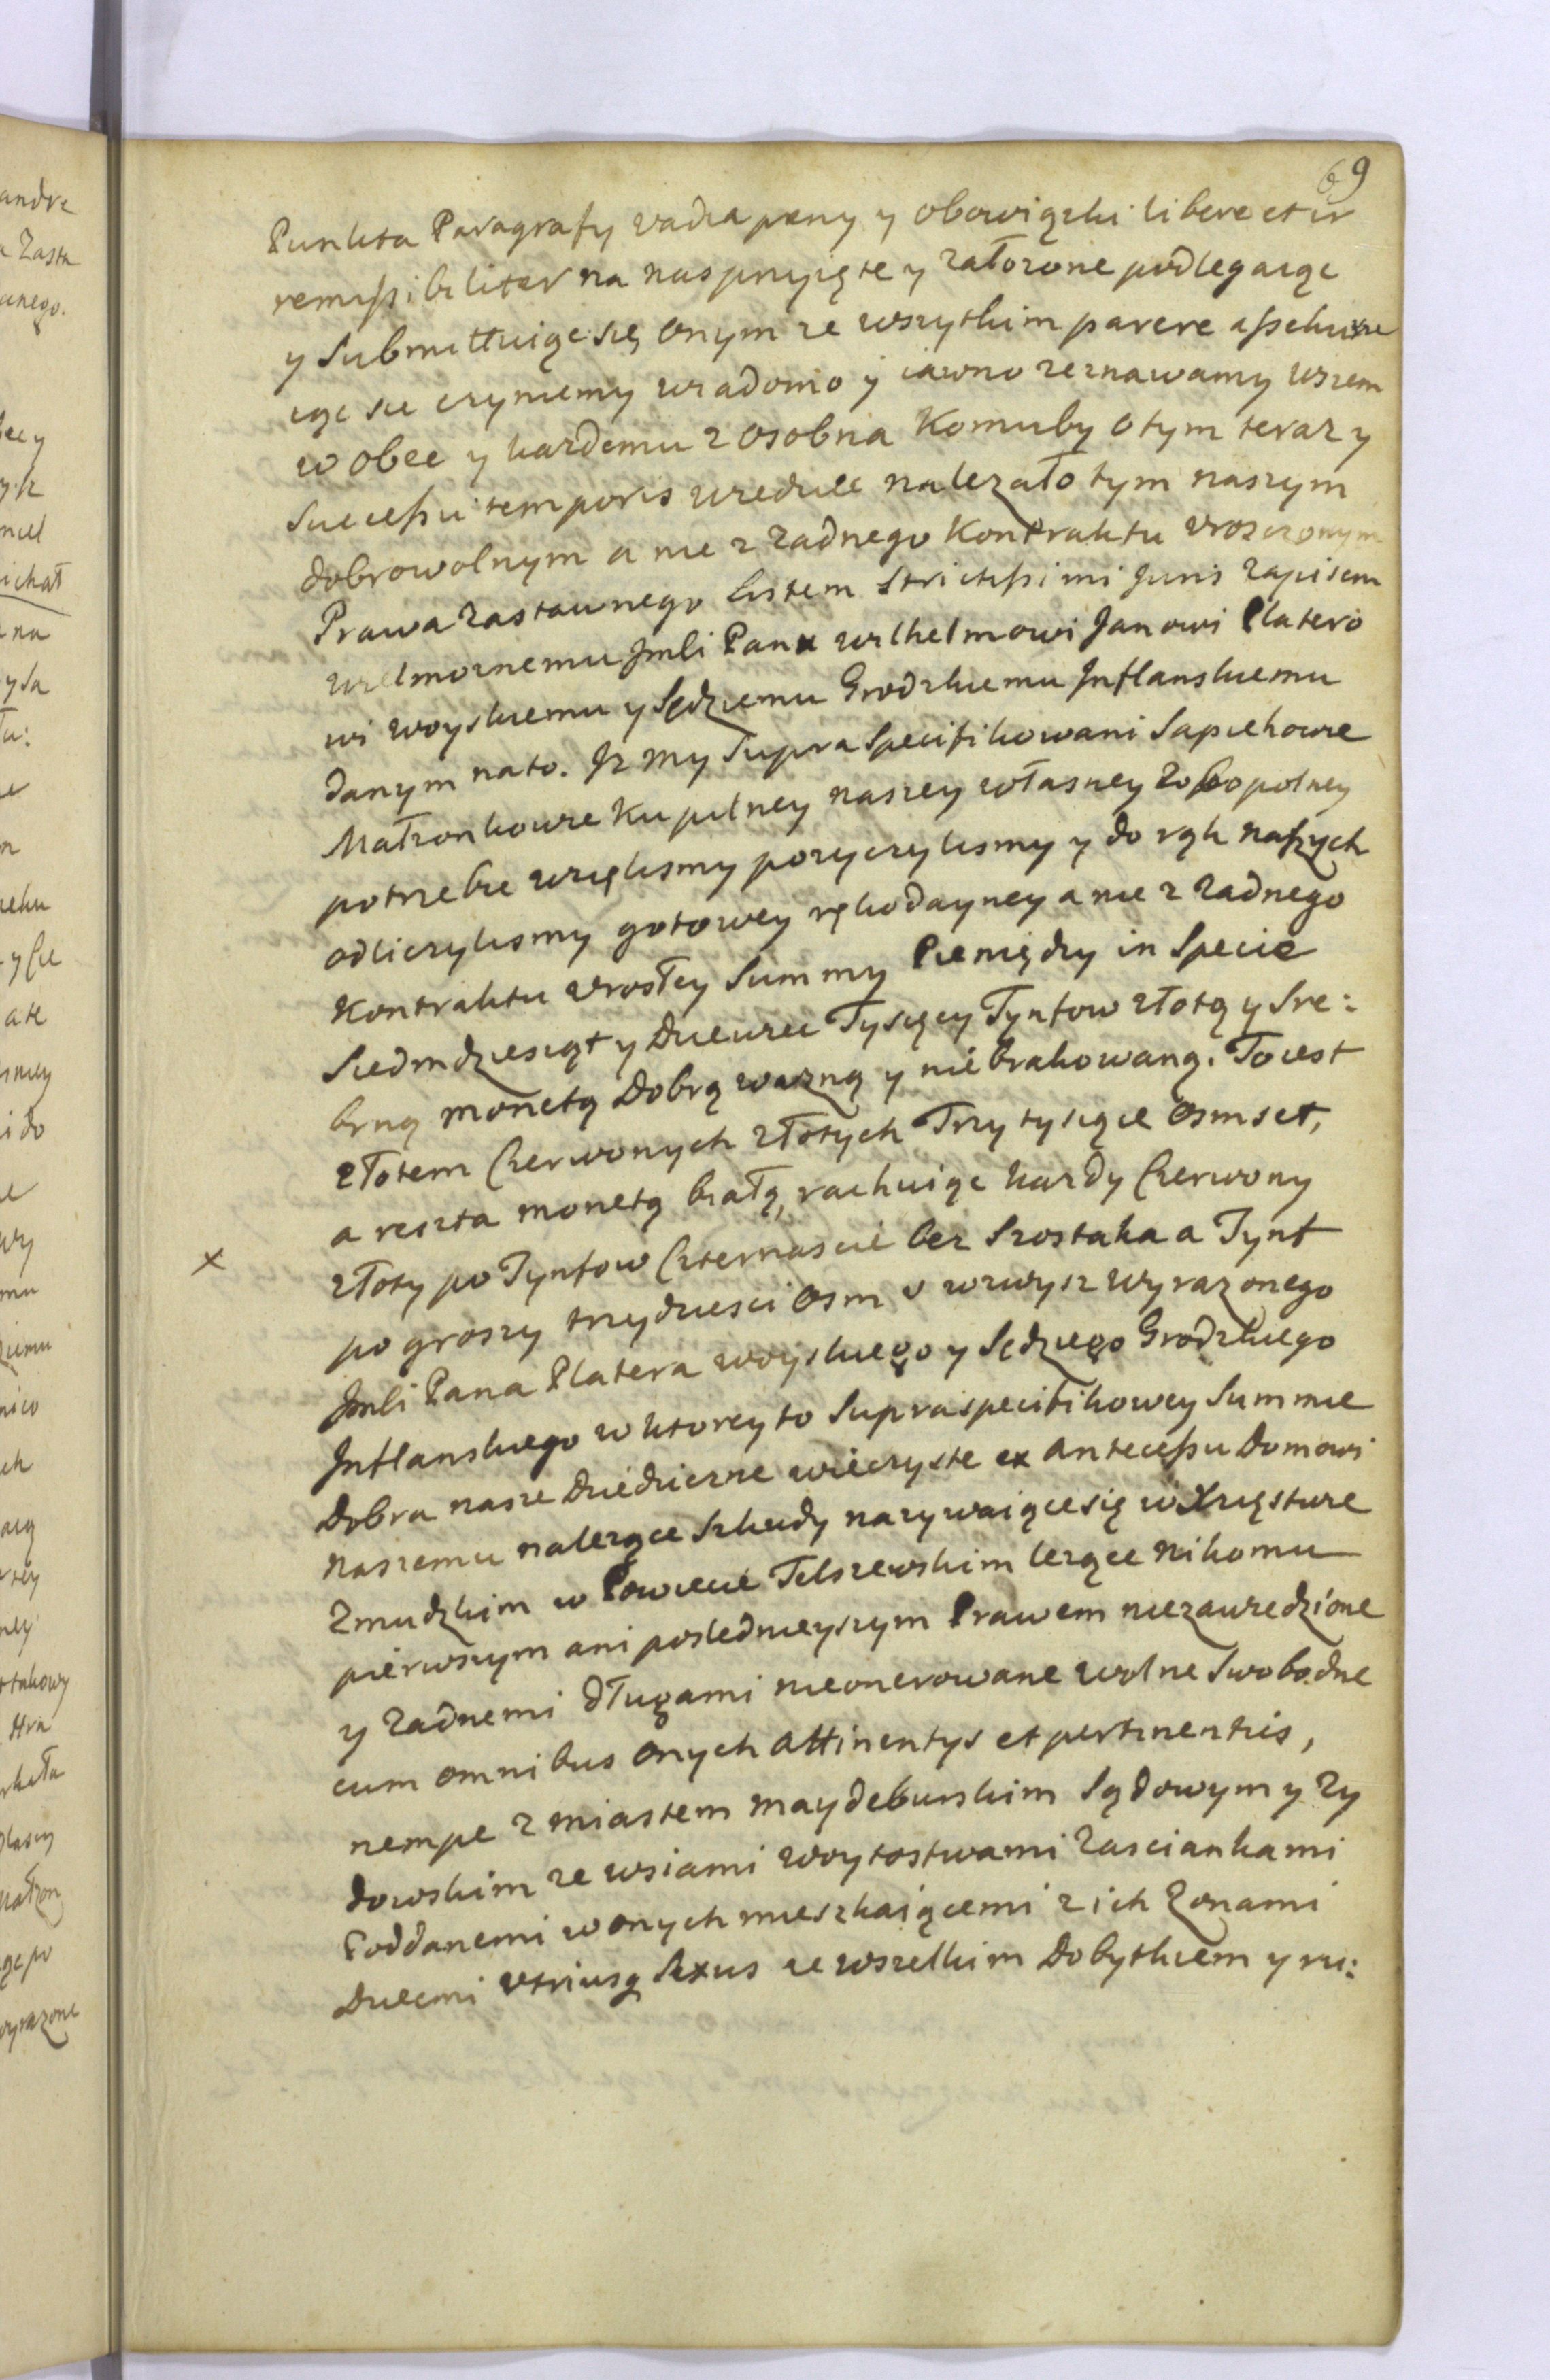 69
Punkta Paragrafy vadia pæny y obowiązki libere et ir
remissibiliter na nas przyięte y załozone podlegaiąc
y submittuiąc się onym ze wszytkim parere assekuru
iąc sie czyniemy wiadomo y iawno zeznawamy wszem
w obec y kazdemu z osobna Komuby o tym teraz y
Successu temporis wiedzieć nalezało tym naszym
dobrowolnym a nie z zadnego Kontraktu wroszczonym
Prawa Zastawnego Listem Strictissimi Juris Zapisem
wielmoznemu Jmći Panu Wilhelmowi Janowi Platero
wi woyskiemu y Sędziemu Grodzkiemu Inflanskiemu
danym na to. Iz my Supra Specifikowani Sapiehowie
Małzonkowie Ku pilney naszey własney Zobopolney
potrzebie wzięlismy pozyczylismy y do rąk naszych
odliczylismy gotowey rękodayney a nie z zadnego
Kontraktu wrosłey Summy Pieniędzy in Specie
Siedmdziesiąt y Dziewięć Tysięcy Tynfow złotą y Sre:
brną monetą dobrą wazną y nie brakowaną. To iest
złotem Czerwonych złotych Trzy tysiące osmset,
a reszta monetą białą, rachuiąc kazdy Czerwony
x
złoty po Tynfow Czternascie bez Szostaka a Tynf
po groszy trzydziesci osm v wzwysz wyrazonego
Jmći Pana Platera woyskiego y Sędziego Grodzkiego
Inflanskiego w ktorey to Supra specifikowey Summie
Dobra nasze Dziedziczne wieczyste ex antecessu Domowi
naszemu nalezące Szkudy nazywaiące się w Xięstwie
Zmudzkim w Powiecie Telszewskim lezące nikomu
pierwszym ani poslednieyszym Prawem niezawiedzione
y zadnemi długami nieonerowane wolne Swobodne
cum omnibus onych attinentys et pertinentiis,
nempe z miastem maydeburskim Sądowym y Zy
dowskim ze wsiami woytostwami Zasciankami
Poddanemi w onych mieszkaiącemi z ich Zonami
Dziećmi vtriusq Sexus ze wszelkim Dobytkiem y ru: